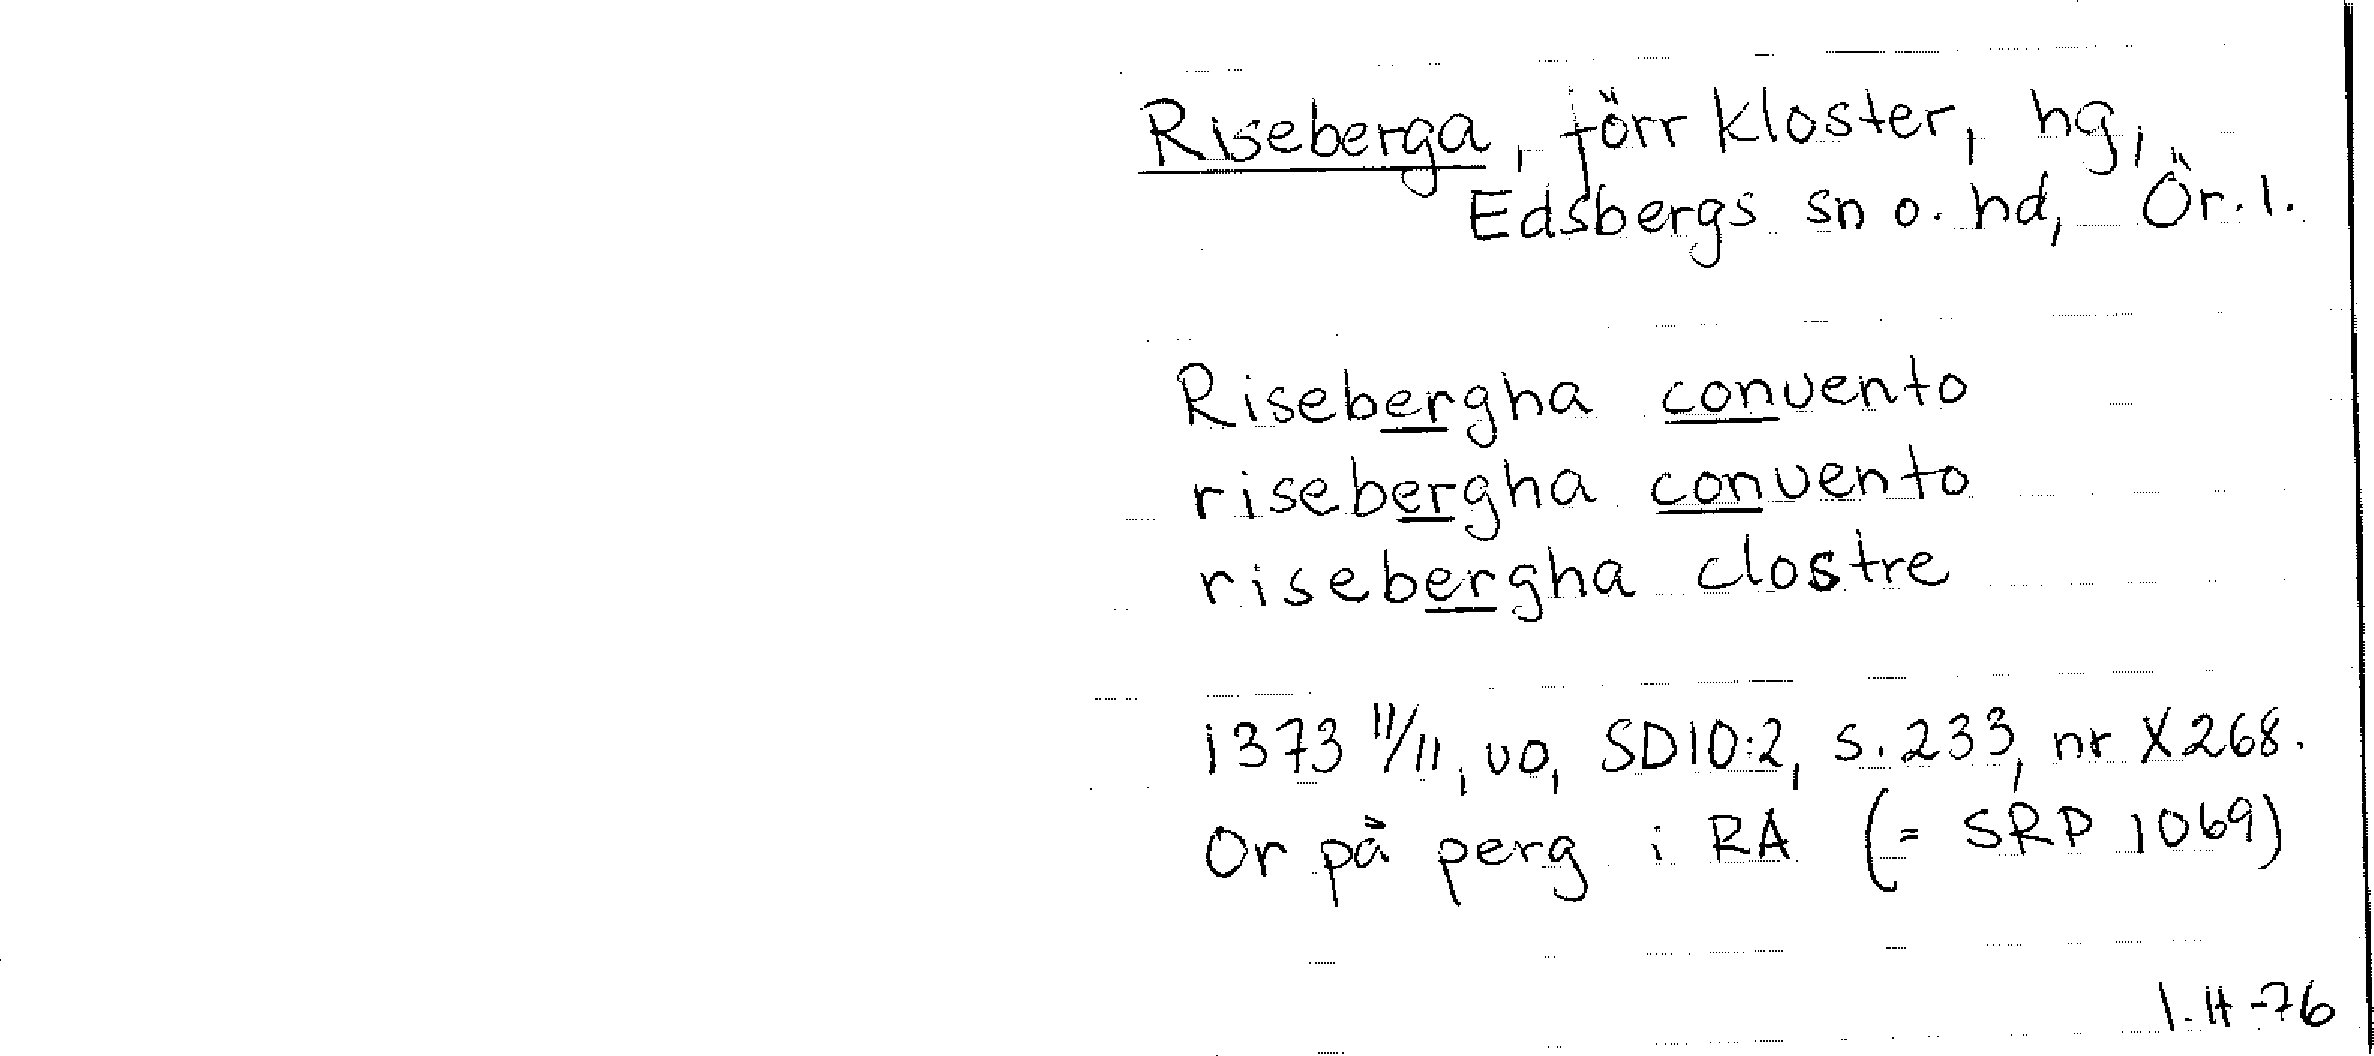 Riseberga, förr kloster, hg,
Edsbergs sn o. hd, Ör. l.
Risebergha convento
risebergha convento
risebergha clostre
1373 11/11, uo, SD10:2, s. 233, nr X268.
Or på perg i RA (= SRP 1069)
I. H -76